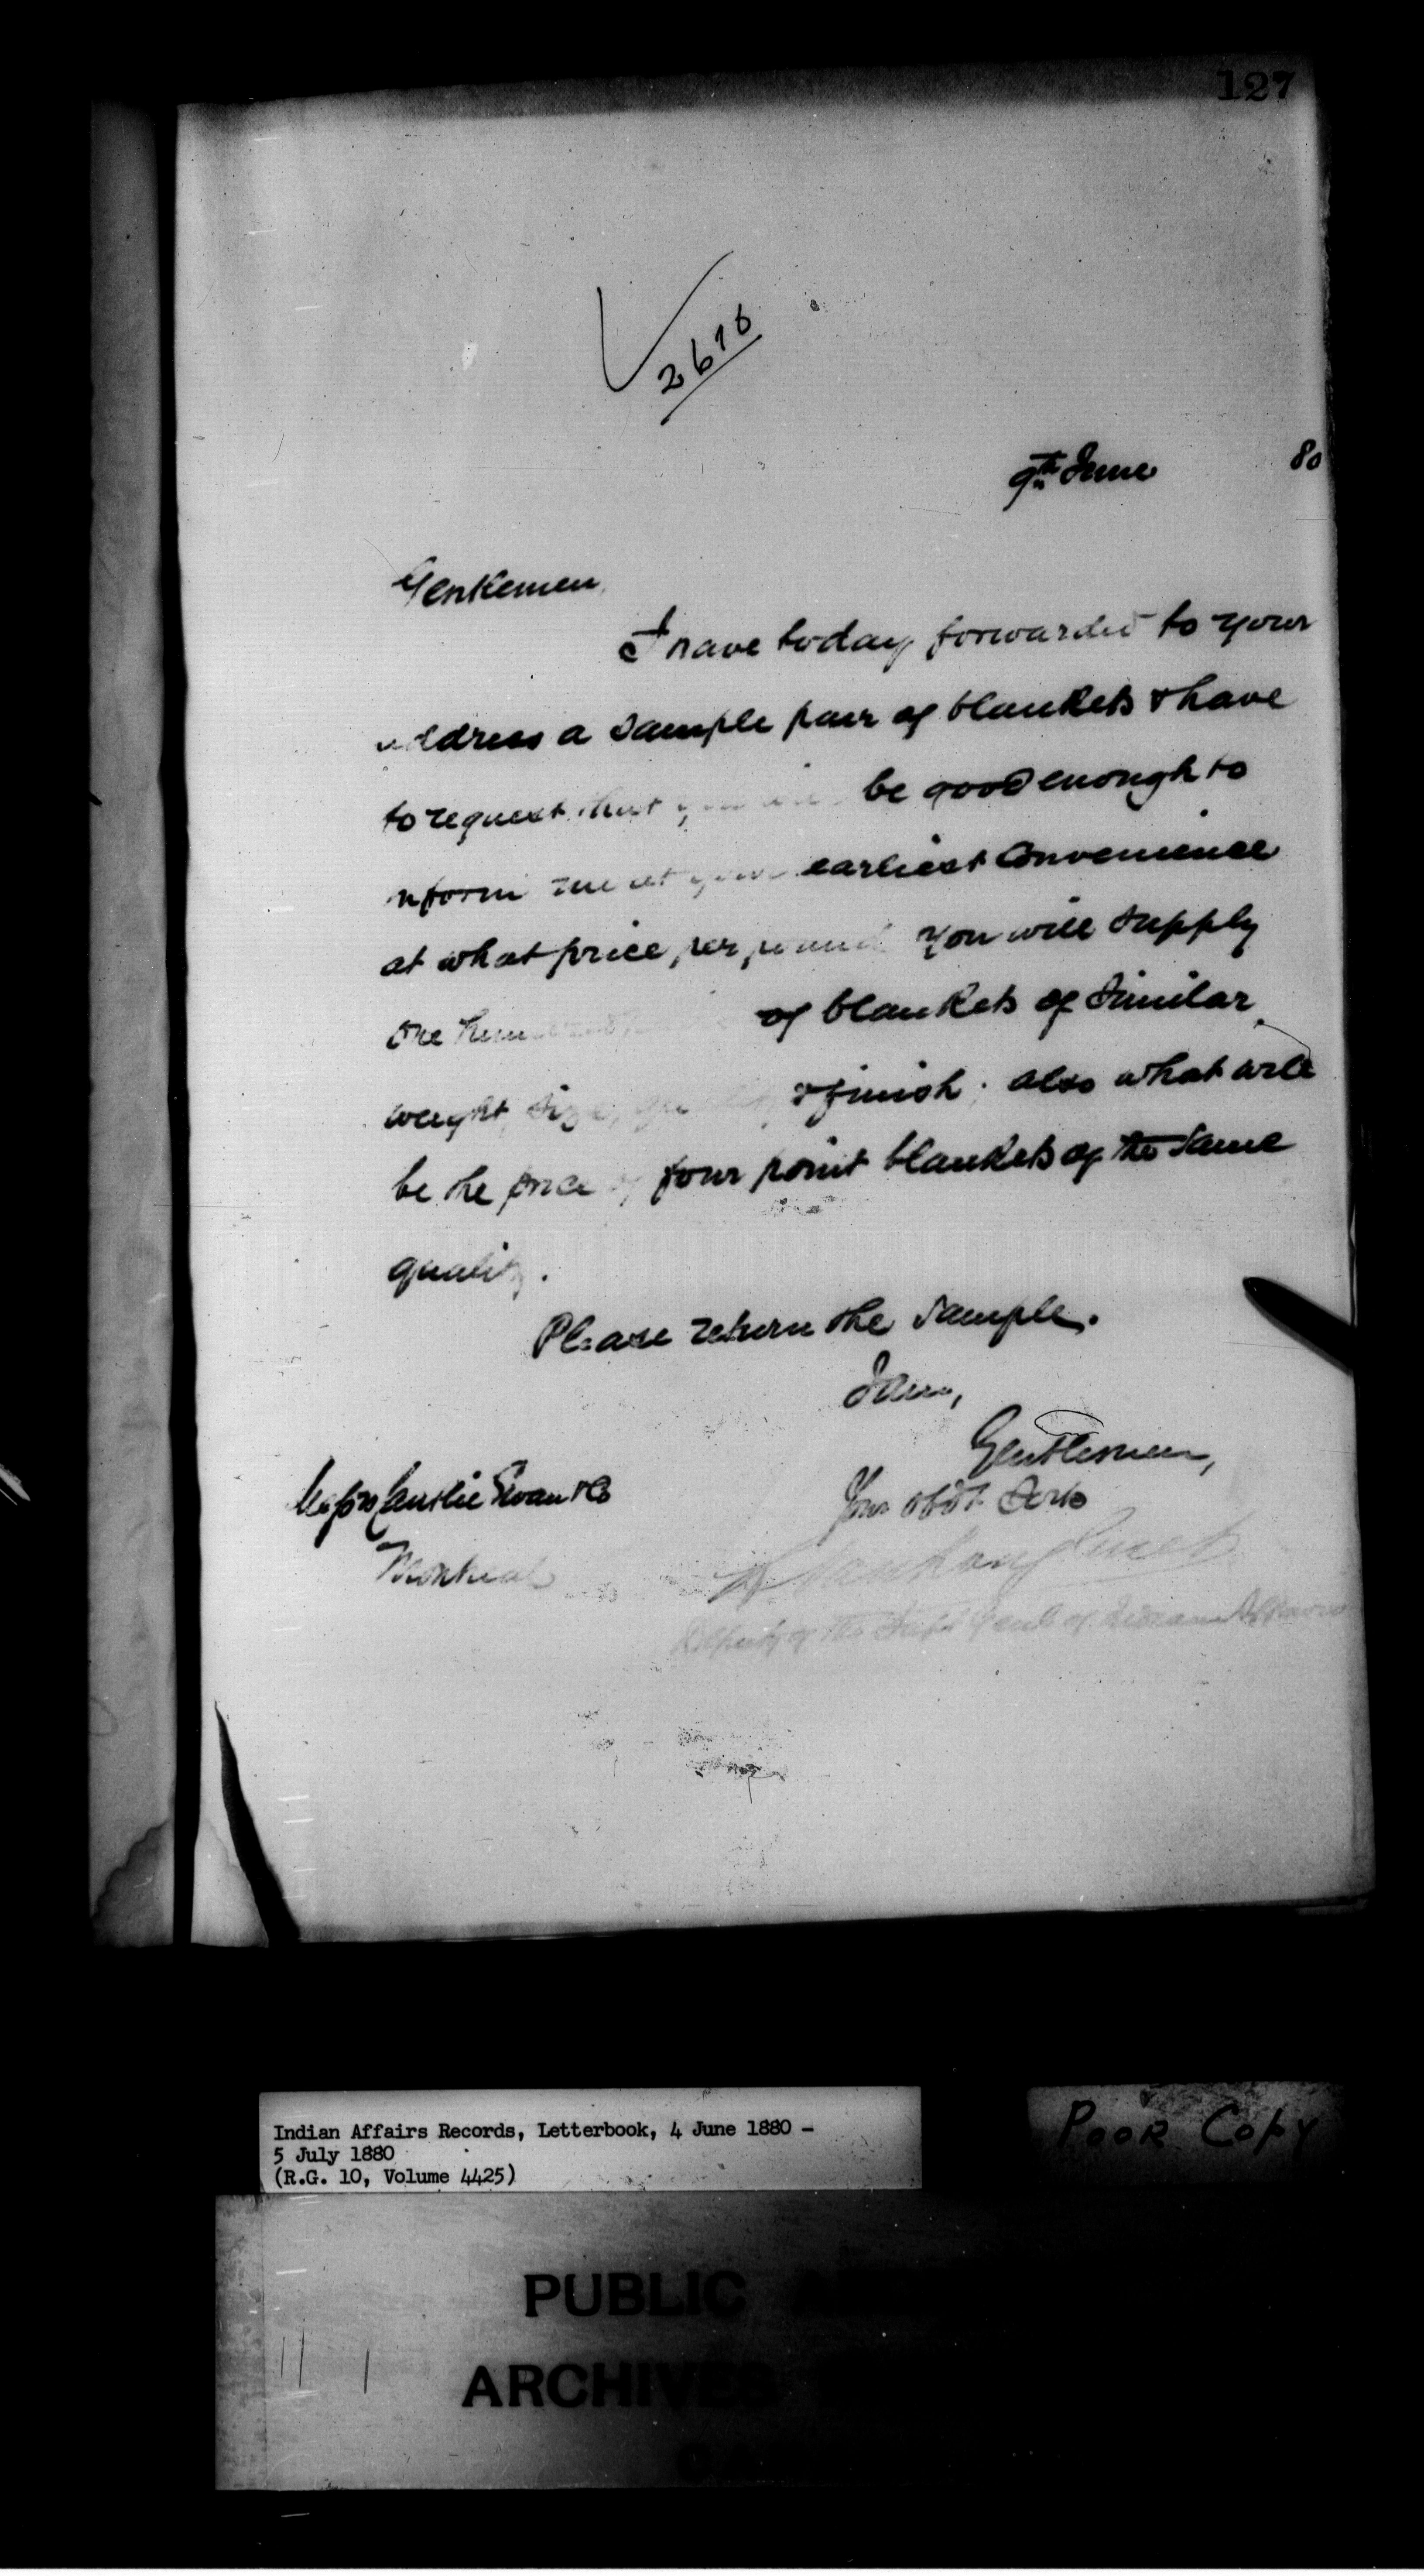 127
2676
9th June 80
Gentlemen,
I have today forwarded to your
address a sample pair of blankets & have
to request that you will be good enough to
inform me at your earliest convenience
at what price per pound you will supply
one hundred of blankets of similar
weight, size, quality & finish; also what will
be the price of four point blankets of the same
quality.
Please return the sample.
I am,
Gentlemen,
Your obdt Servt
Messrs & Co
Montreal
L Vankoughnet
Deputy of the Supt Genl of Indian Affairs
Indian Affairs Records, Letterbook, 4 June 1880 -
5 July 1880
(R.G. 10, Volume 4425)
POOR COPY
PUBLIC
ARCHIVES